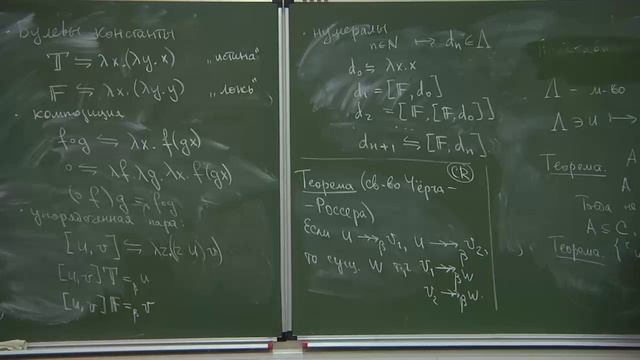 · Булевы константы
𝕋 ⇆ λx.(λy.x) „истина"
𝔽 ⇆ λx.(λy.y) „ложь"
· композиция
f∘g ⇆ λx. f(gx)
∘ ⇆ λf.λg.λx.f(gx)
(∘ f) g =β f∘g
· упорядоченная пара:
[u,v] ⇆ λz.(z u) v)
[u,v] 𝕋 =β u
[u,v] 𝔽 =β v
· нумералы
n∈ℕ ↦ dn ∈ Λ
d0 ⇆ λx.x
d1 = [𝔽, d0]
d2 = [𝔽, [𝔽, d0]]
dn+1 ⇆ [𝔽, dn]
(CR)
Теорема (св-во Чёрча-
-Россера)
Если u ↠β v1, u ↠β v2,
то сущ. w т.ч. v1 ↠β w
v2 ↠β w.
Λ – м-во
Λ ∋ u ↦
Теорема. A
Тогда не
A ≤ C.
Теорема {